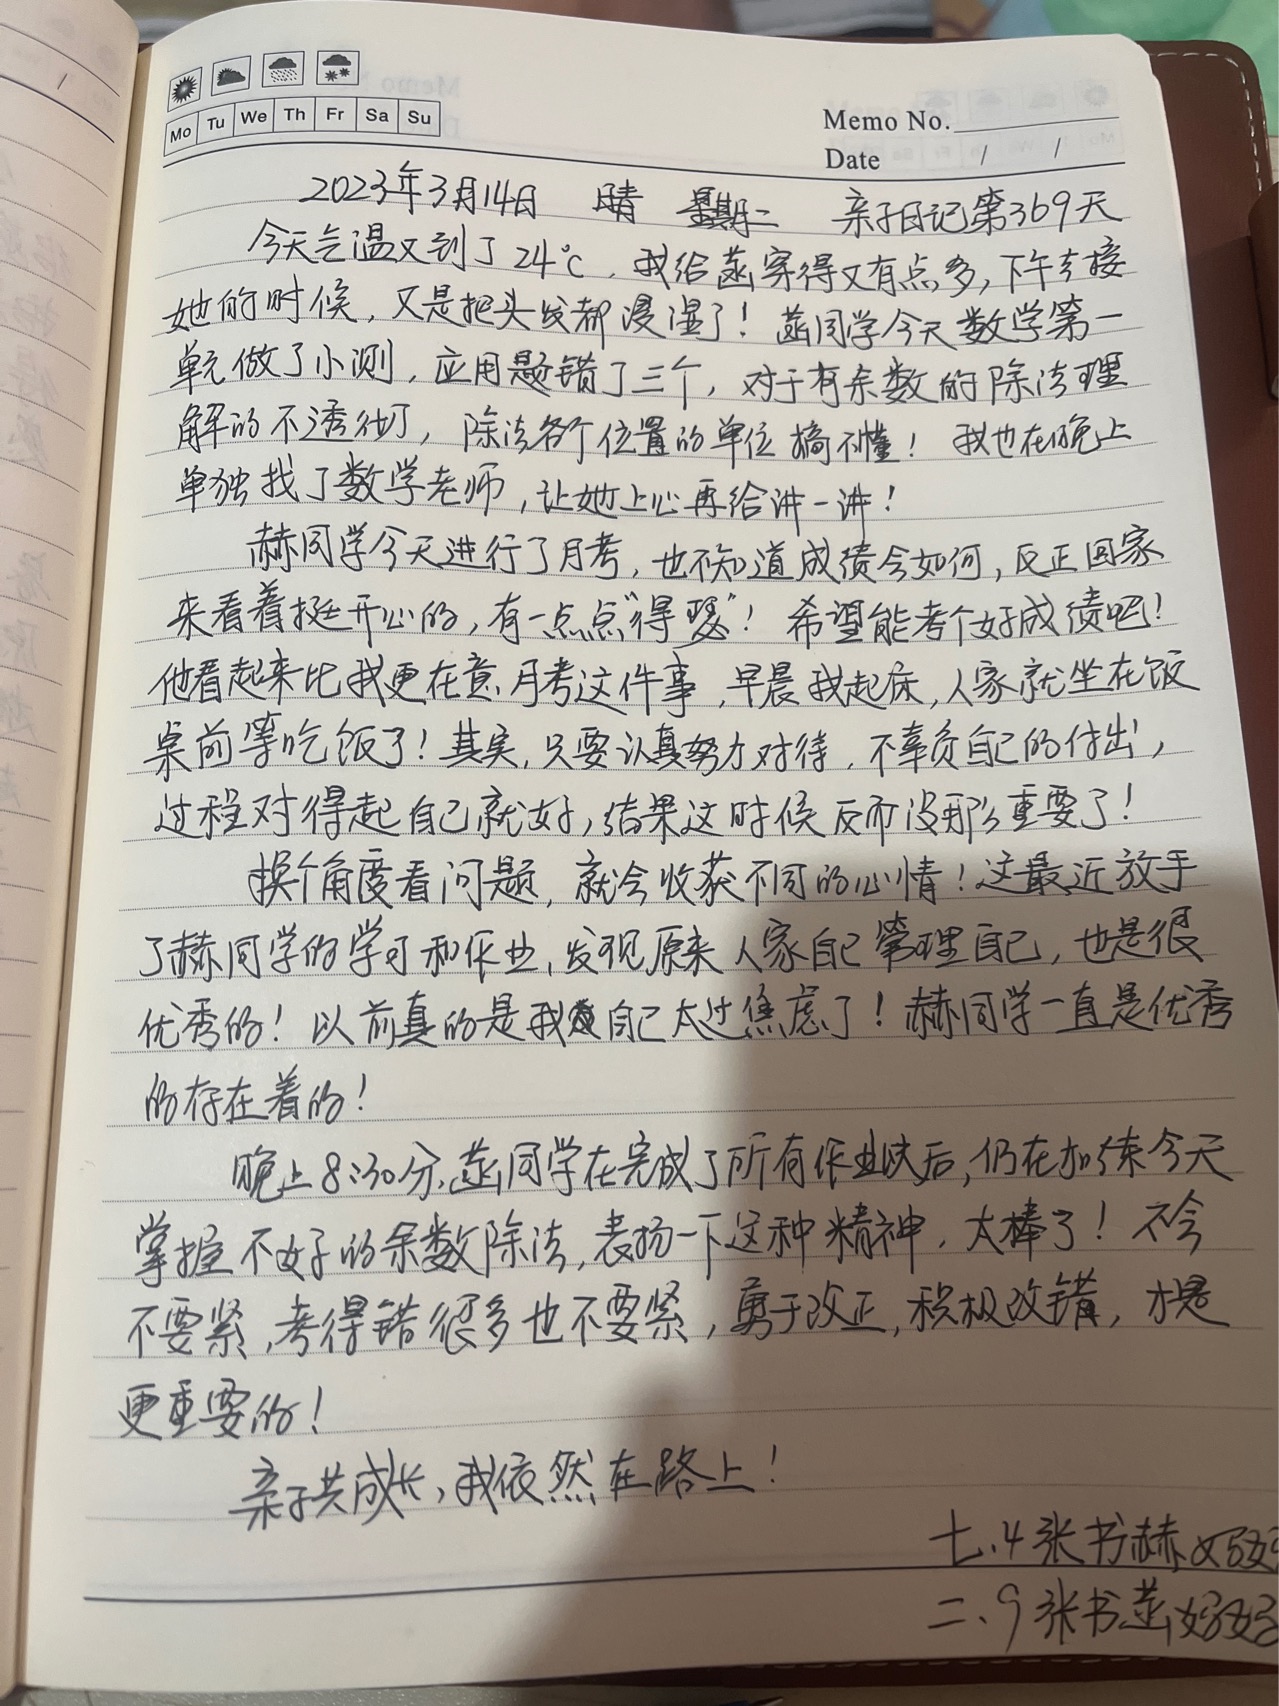 Mo Tu We Th Fr Sa Su
Memo No.
Date / /
2023年3月14日 晴 星期二 亲子日记第369天
今天气温又到了24℃，我给菡穿得又有点多，下午去接
她的时候，又是把头发都浸湿了！菡同学今天数学第一
单元做了小测，应用题错了三个，对于有余数的除法理
解的不透彻了，除法各个位置的单位搞不懂！我也在晚上
单独找了数学老师，让她上心再给讲一讲！
赫同学今天进行了月考，也不知道成绩会如何，反正回家
来看着挺开心的，有一点点“得瑟”！希望能考个好成绩吧！
他看起来比我更在意月考这件事，早晨我起床，人家就坐在饭
桌前等吃饭了！其实，只要认真努力对待，不辜负自己的付出，
过程对得起自己就好，结果这时候反而没那么重要了！
换个角度看问题，就会收获不同的心情！这最近放手
了赫同学的学习和作业，发现原来人家自己管理自己，也是很
优秀的！以前真的是我自己太过焦虑了！赫同学一直是优秀
的存在着的！
晚上8:30分，菡同学在完成了所有作业以后，仍在加练今天
掌握不好的余数除法，表扬一下这种精神，太棒了！不会
不要紧，考得错很多也不要紧，勇于改正，积极改错，才是
更重要的！
亲子共成长，我依然在路上！
七.4张书赫妈妈
二.9张书菡妈妈